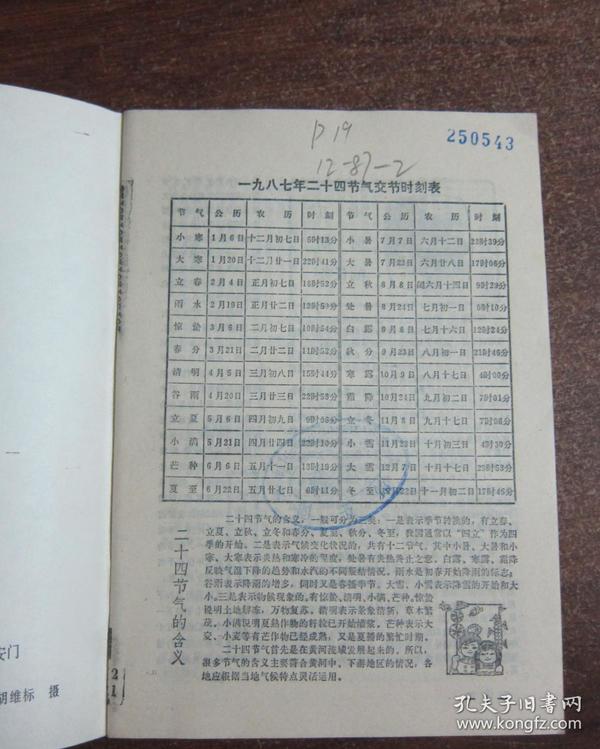 P19
250543
12-87-2
一九八七年二十四节气交节时刻表
节气 公历 农历 时刻 节气 公历 农历 时刻
小寒 1月6日 十二月初七日 小暑 7月7日 六月十二日 22时39分
大寒 1月20日 十二月廿一日 22时41分 大暑 7月23日 六月廿八日 17时06分
立春 2月4日 正月初七日 16时52分 立秋 8月8日 闰六月十四日
雨水 2月19日 正月廿二日 12时50分 处暑 8月24日 七月初一日
惊蛰 3月6日 二月初七日 白露 9月8日 七月十六日
春分 3月21日 二月廿二日 11时52分 秋分 9月23日 八月初一日 21时45分
清明 4月5日 三月初八日 15时44分 寒露 10月9日 八月十七日
谷雨 4月20日 三月廿三日 22时58分 霜降 10月24日 九月初二日 7时01分
立夏 5月6日 四月初九日 立冬 11月8日 九月十七日 7时06分
小满 5月21日 四月廿四日 22时10分 小雪 11月23日 十月初三日 4时30分
芒种 6月6日 五月十一日 13时19分 大雪 12月7日 十月十七日 23时53分
夏至 6月22日 五月廿七日 6时11分 冬至 12月22日 十一月初二日 17时46分
二十四节气的含义
二十四节气的含义，一般可分为三类：一是表示季节转换的，有立春、
立夏、立秋、立冬和春分、夏至、秋分、冬至，我国通常以“四立”作为四
季的开始。二是表示气候变化状况的，共有十二节气。其中小暑、大暑和小
寒、大寒表示炎热和寒冷的程度，处暑有炎热终止之意，白露、寒露、霜降
反映气温下降的趋向和水汽的不同凝结情况。雨水是初春开始降雨的标志；
谷雨表示降雨的增多，同时又是春播季节。大雪、小雪表示降雪的开始和大
小。三是表示物候现象的。有惊蛰、清明、小满、芒种。惊蛰
说明土地解冻，万物复苏。清明表示景象清新，草木繁
茂。小满说明夏熟作物的籽粒已开始灌浆。芒种表示大
麦、小麦等有芒作物已经成熟，又是夏播的繁忙时期。
二十四节气首先是在黄河流域发展起来的。所以，
很多节气的含义主要符合黄河中、下游地区的情况，各
地应根据当地气候特点灵活运用。
安门
胡维标 摄
21
孔夫子旧书网
www.kongfz.com